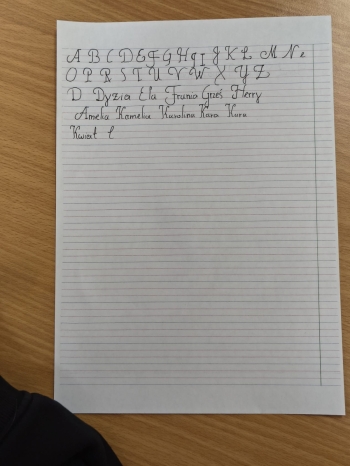 A B C D E F G H g I J K L M N e
O P R S T U V W X Y Z
D Dyzia Ela Frania Grześ Herry
Amelia Kamelia Karolina Kara Kura
Kwiat l